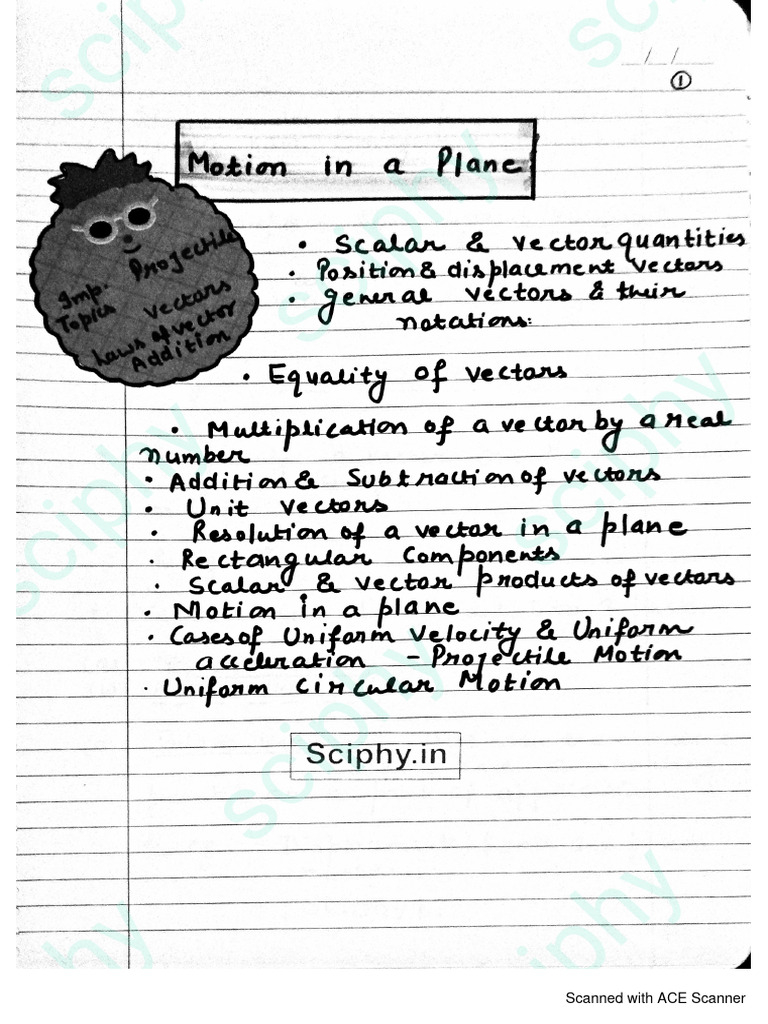 / /
①
Motion in a Plane
Imp. Topics
Projectile
Vectors
Laws of vector
Addition
• Scalar & vector quantities
• Position & displacement vectors
• general vectors & their
notations:
• Equality of vectors
• Multiplication of a vector by a real
number
• Addition & Subtraction of vectors
• Unit vectors
• Resolution of a vector in a plane
• Rectangular Components
• Scalar & vector products of vectors
• Motion in a plane
• Cases of Uniform Velocity & Uniform
acceleration - Projectile Motion
• Uniform Circular Motion
Sciphy.in
sciphy
sciphy
sciphy
sciphy
sciphy
sciphy
sciphy
sciphy
Scanned with ACE Scanner